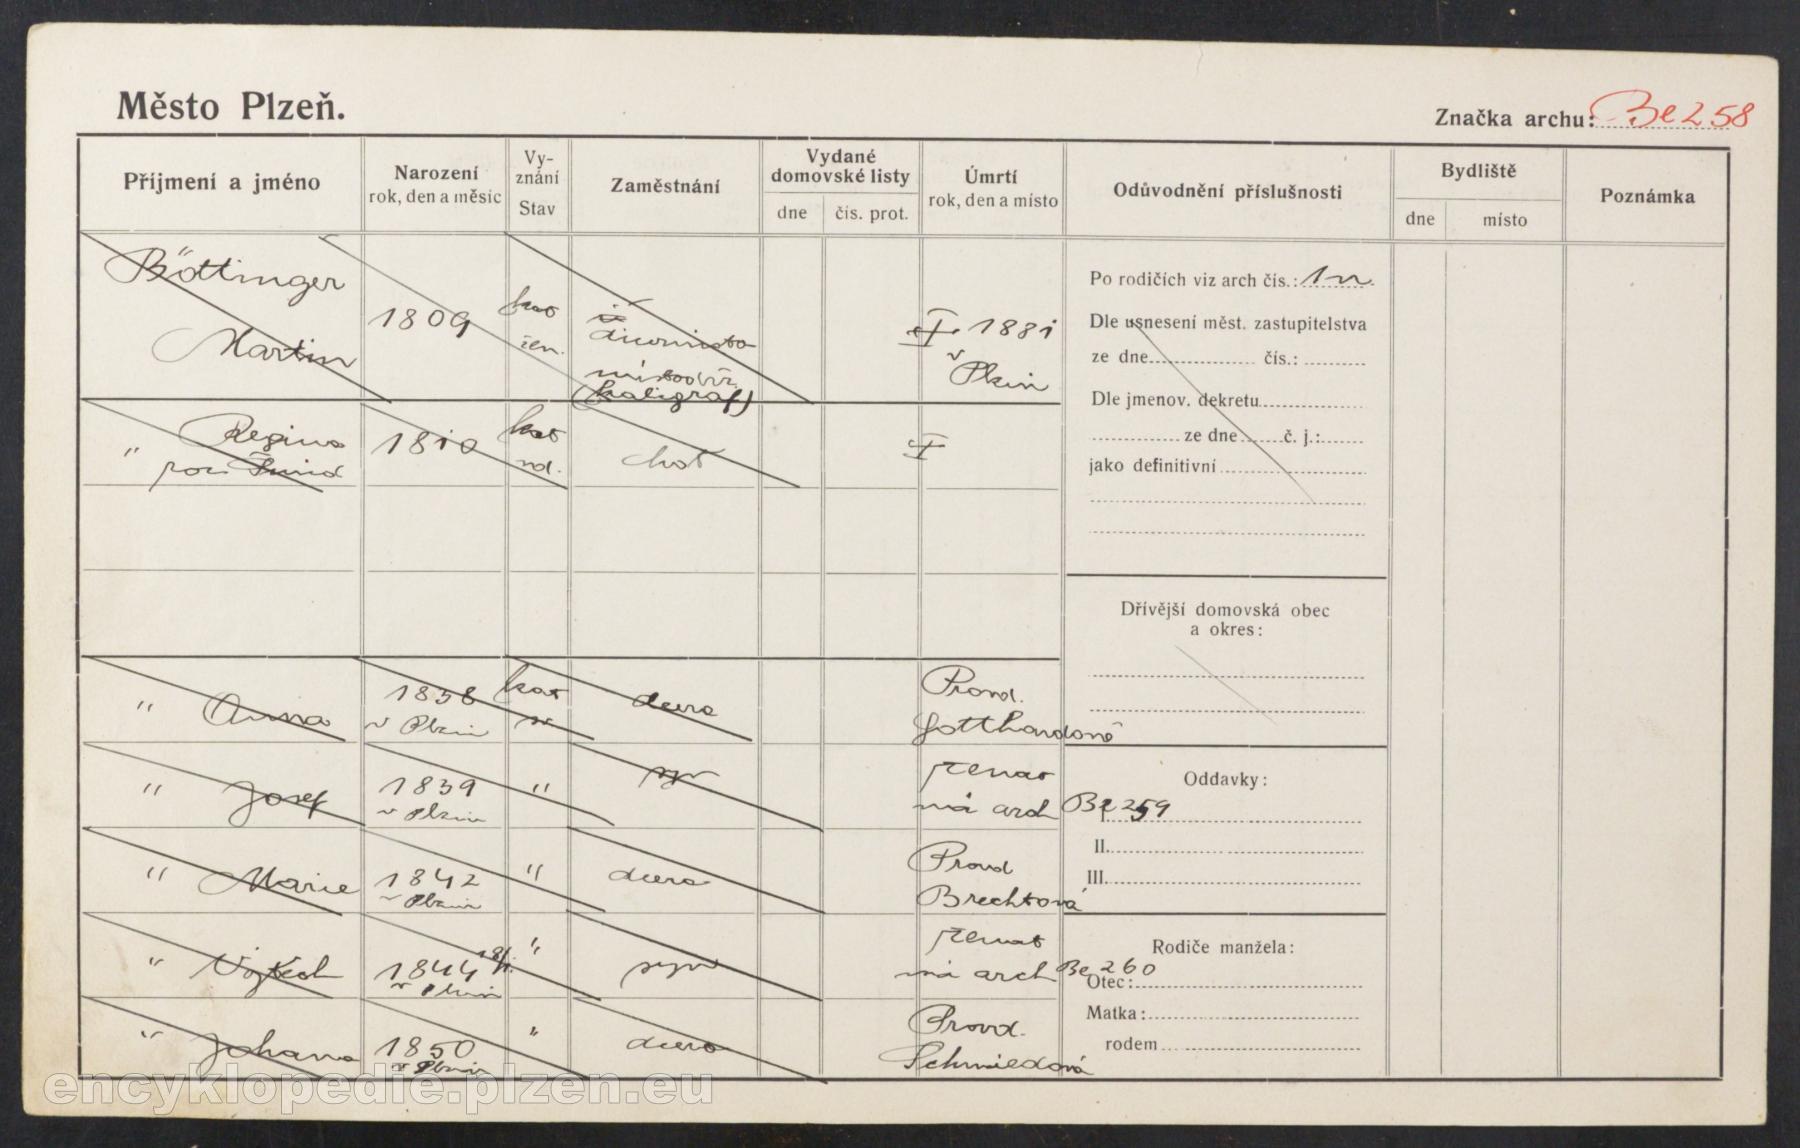 Město Plzeň.
Značka archu: Be 258
Příjmení a jméno
Narození
rok, den a měsíc
Vy-
znání
Stav
Zaměstnání
Vydané
domovské listy
dne
čís. prot.
Úmrtí
rok, den a místo
Odůvodnění příslušnosti
Bydliště
dne
místo
Poznámka
Böttinger
Martin
1809
kat
žen.
(kaligraf)
1881
v Plzni
" Regina
roz.
1810
kat
vd.
choť
" Anna
1838
v Plzni
kat
sv
dcera
Provd.
Gotthardově
" Josef
1839
v Plzni
"
syn
ženat
má arch Be 259
" Marie
1842
v Plzni
"
dcera
Provd
Brechtová
" Vojtěch
1844
v Plzni
"
syn
ženat
má arch Be 260
" Johana
1850
v Plzni
"
dcera
Provd.
Schmiedová
Po rodičích viz arch čís.:
Dle usnesení měst. zastupitelstva
ze dne čís.:
Dle jmenov. dekretu
ze dne č. j.:
jako definitivní
Dřívější domovská obec
a okres:
Oddavky:
I.
II.
III.
Rodiče manžela:
Otec:
Matka:
rodem
encyklopedie.plzen.eu